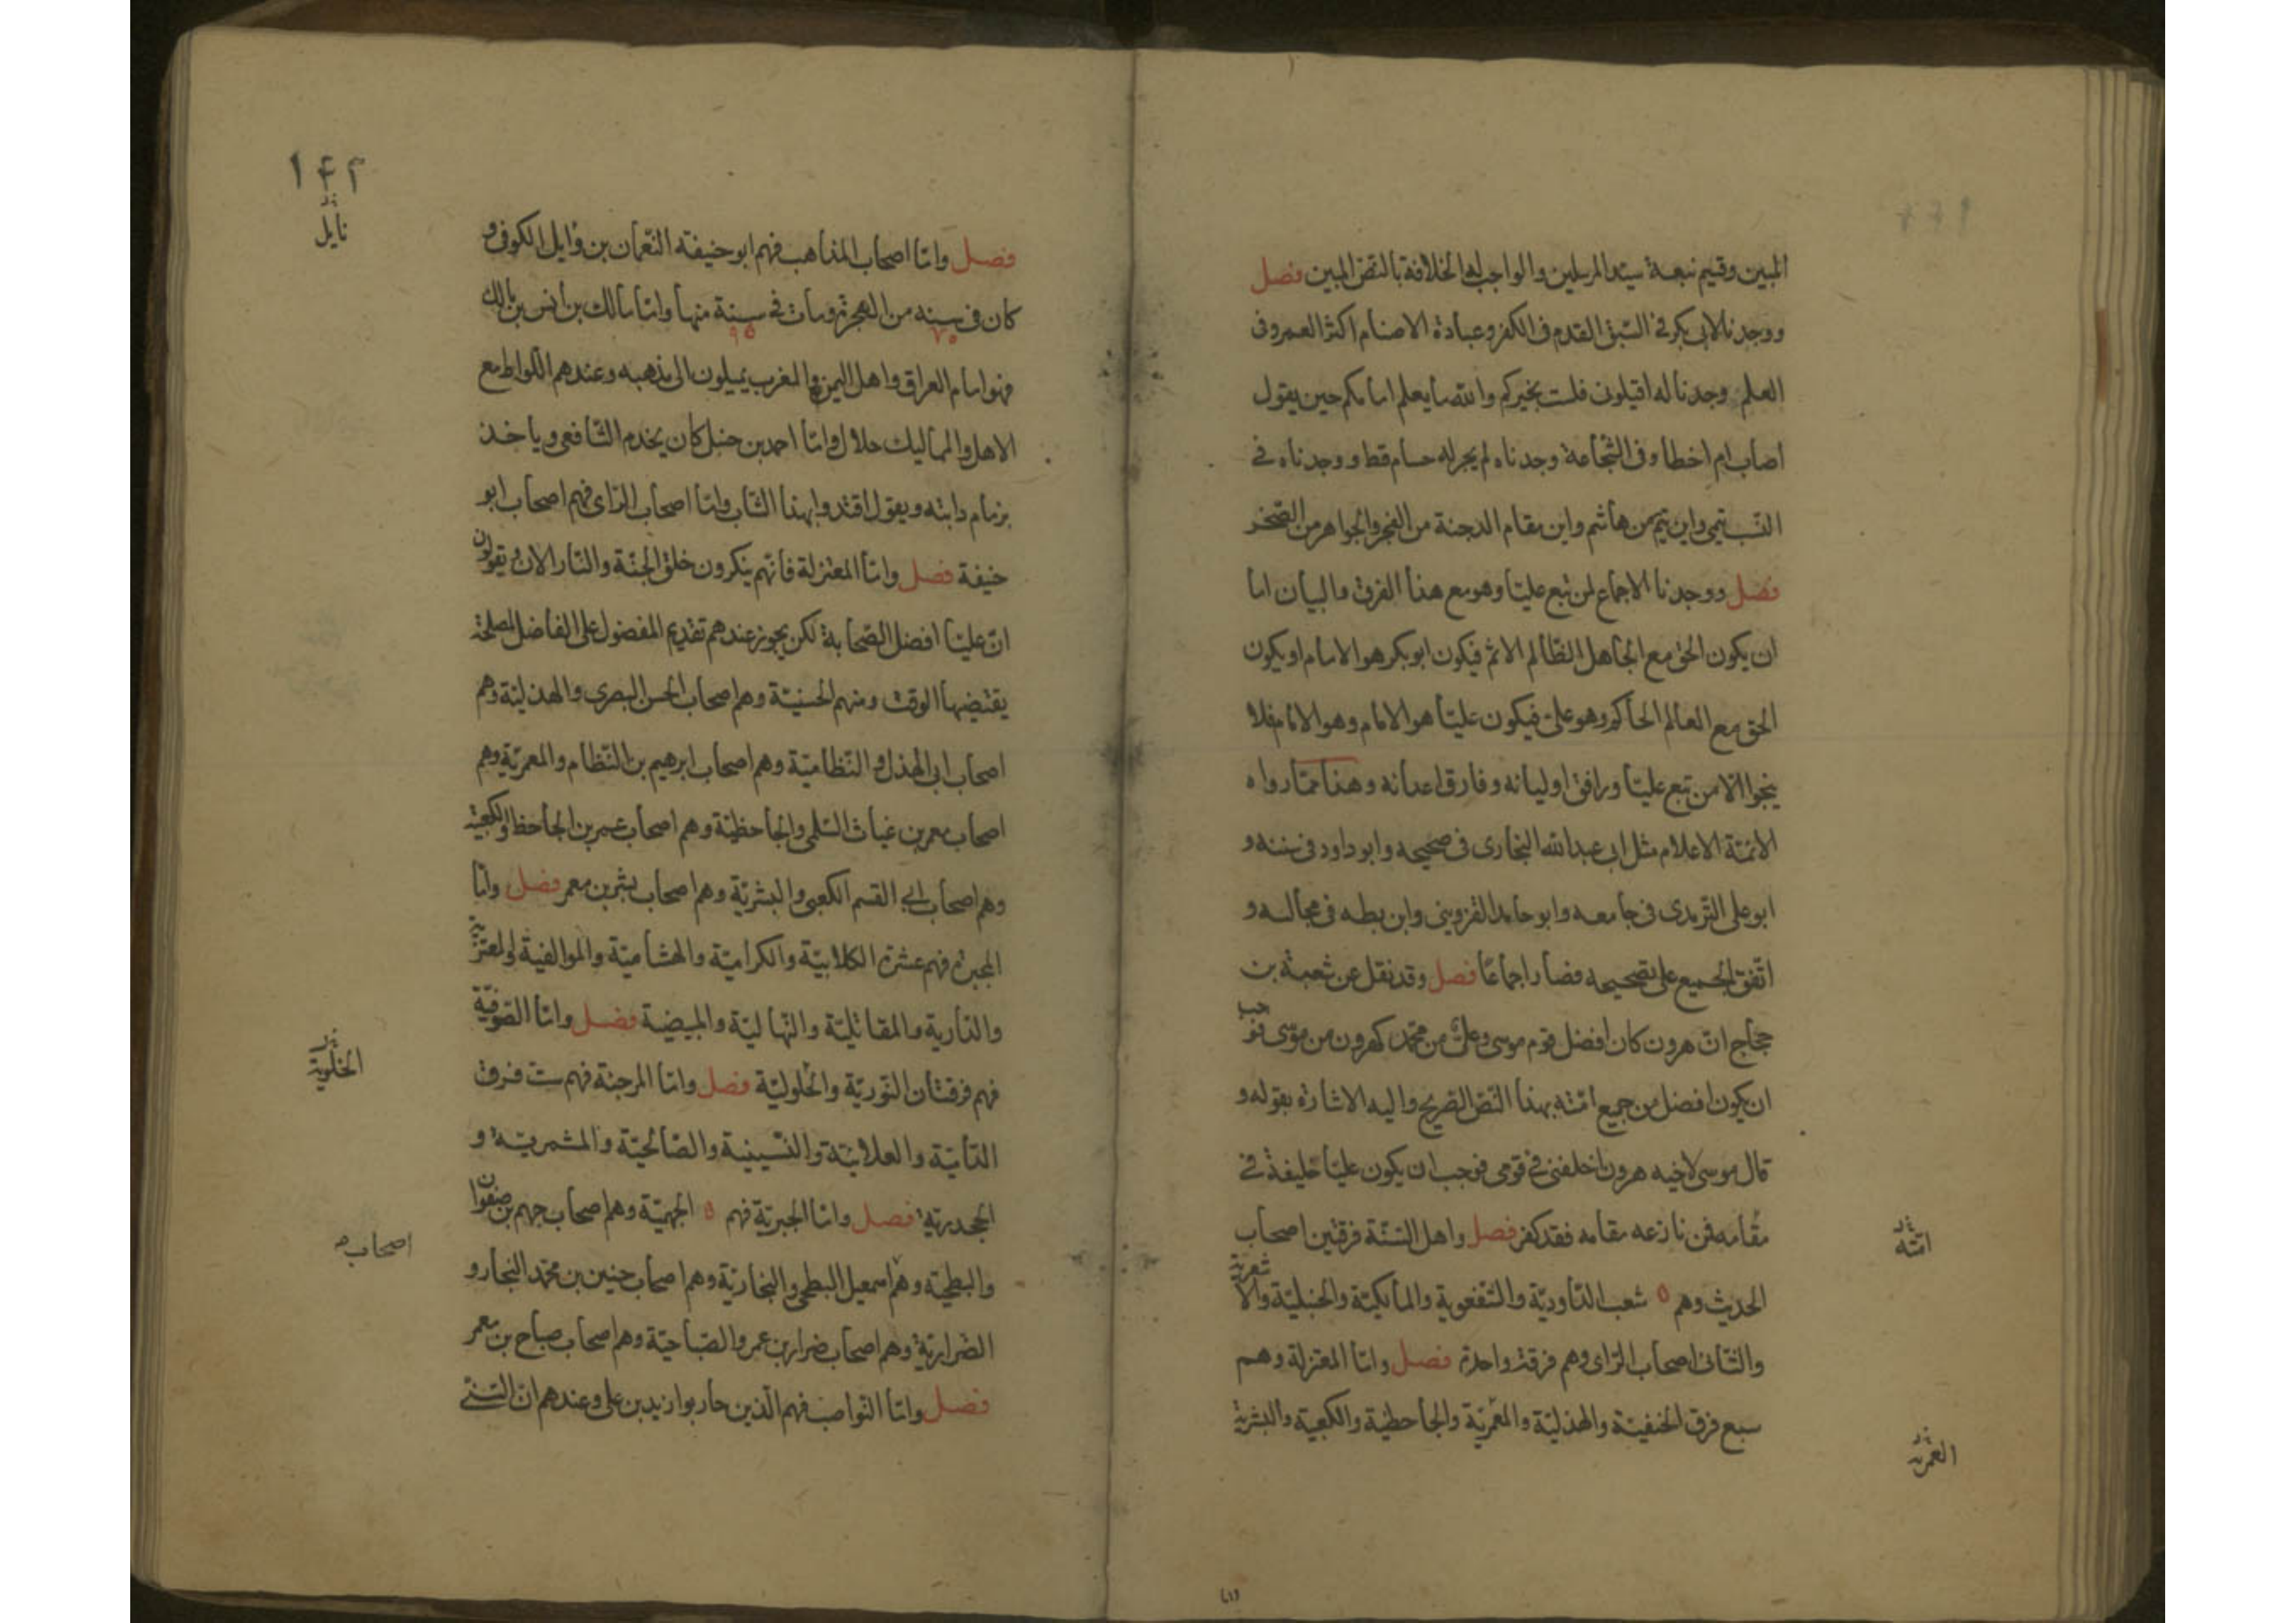 المبين وقسيم نبعة سيد المرسلين والواجب له الخلافة بالنص المبين فصل
ووجدنا لابى بكر فى السبق القدم فى الكفر وعبادة الاصنام اكثر العمر وفى
العلم وجدنا له اقيلونى فلست بخيركم والله ما يعلم امامكم حين يقول
اصاب ام اخطا وفى الشجاعة وجدناه لم يجر له حسام قط ووجدناه فى
النسب تيمى واين تيم من هاشم واين مقام الدجنة من الفجر والجواهر من الصخر
فصل ووجدنا الاجماع لمن تبع عليا وهو مع هذا الفرق والبيان اما
ان يكون الحق مع الجاهل الظالم الاثم فيكون ابو بكر هو الامام او يكون
الحق مع العالم الحاكم وهو على فيكون عليا هو الامام وهو الامام فلا
ينجوا الا من تبع عليا ورافق اوليائه وفارق اعدائه وهذا مما رواه
الائمة الاعلام مثل ابى عبد الله البخارى فى صحيحه وابو داود فى سننه و
ابو على الترمدى فى جامعه وابو حامد القزوينى وابن بطه فى مجالسه و
اتفق الجميع على تصحيحه فصار اجماعا فصل وقد نقل عن شعبة بن
حجاج ان هرون كان افضل قوم موسى وعلى من محمد كهرون من موسى فوجب
ان يكون افضل من جميع امته بهذا النص الصريح واليه الاشارة بقوله و
قال موسى لاخيه هرون اخلفنى فى قومى فوجب ان يكون عليا خليفة فى
مقامه فمن نازعه مقامه فقد كفر فصل واهل السنة فرقتين اصحاب
امته
الحديث وهم ٥ شعب الداودية والشفعوية والمالكية والحنبلية والاشعرية
والثانى اصحاب الراى وهم فرقة واحدة فصل واما المعتزلة وهم
سبع فرق الحنفية والهذلية والمعمرية والجاحظية والكعبية والبشرية
العمرية
١٤٢
نايل
فصل واما اصحاب المذاهب فهم ابو حنيفة النعمان بن وايل الكوفى و
كان فى سنه من الهجرة ومات فى سنة منها واما مالك بن انس بن مالك
٧٥ ٩٥
فهو امام العراق واهل اليمن والمغرب يميلون الى مذهبه وعندهم اللواط مع
الاهل والمماليك حلال واما احمد بن حنبل كان يخدم الشافعى وياخذ
بزمام دابته ويقول اقتدوا بهذا الشاب واما اصحاب الراى فهم اصحاب ابو
حنيفة فصل واما المعتزلة فانهم ينكرون خلق الجنة والنار الان ويقولون
ان عليا افضل الصحابة لكن يجوز عندهم تقديم المفضول على الفاضل لمصلحة
يقتضيها الوقت ومنهم الحسنية وهم اصحاب الحسن البصرى والهذلية وهم
اصحاب ابى الهذل و النظامية وهم اصحاب ابرهيم بن النظام والمعمرية وهم
اصحاب معمر بن غياث السلمى والجاحظية وهم اصحاب عمر بن الجاحظ والكعبية
وهم اصحاب ابى القسم الكعبى والبشرية وهم اصحاب بشر بن معمر فصل واما
المجبرة فهم عشرة الكلابية والكرامية والهشامية والموالفية والمعتزية
والدارية والمقاتلية والنهالية والمبيضة فصل واما الصوفية
فهم فرقتان النورية والحلولية فصل واما المرجئة فهم ست فرق
الخلوية
الدأية والعلانية والنسينية والصالحية والمشمرية و
الجحدرية فصل واما الجبرية فهم ٥ الجهمية وهم اصحاب جهم بن صفوان
والبطحية وهم اسمعيل البطحى والنجارية وهم اصحاب حنين بن محمد النجار و
اصحاب
الضرارية وهم اصحاب ضرار بن عمر والصباحية وهم اصحاب صباح بن معمر
فصل واما النواصب فهم الذين حاربوا زيد بن على وعندهم ان السنى